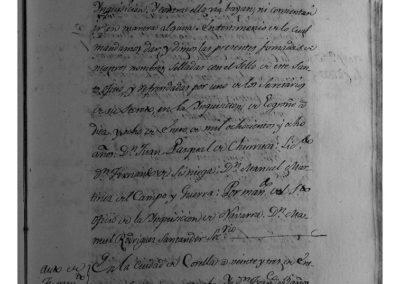 Inquisicion, y contra ello no bayan, ni consientan
yr en manera alguna: En testimonio de lo cual
mandamos dar, y dimos las presentes firmadas de
nuestros nombres, selladas con el sello de este San
Oficio, y refrendadas por uno de los Secretarios
de su Secreto, en la Inquisicion de Logroño a
dies y ocho de Enero de mil ochocientos y ocho
años. Dn. Juan Pasqual de Churruca: Lic.do
Dn. Fernando de Zuñiga: Dn. Manuel Mar
tinez del Campo y Guerra: Por man.do del S.to
Oficio de la Inquisicion de Navarra. Dn. Ma
nuel Rodriguez Santander Sc.rio
Auto de
En la Ciudad de Corella a veinte y tres de En